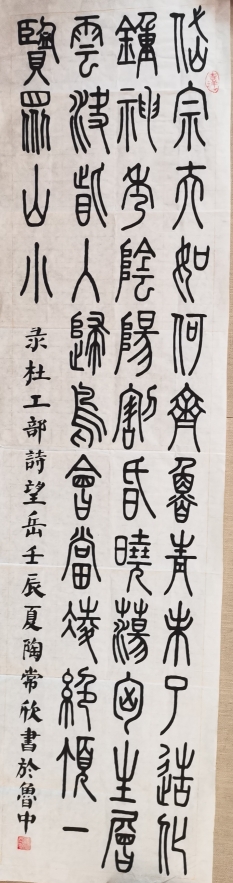 岱宗夫如何齊魯青未了造化
鍾神秀陰陽割昏曉蕩胸生層
雲決眥入歸鳥會當凌絕頂一
覽眾山小
录杜工部詩望岳壬辰夏陶常欣書於魯中